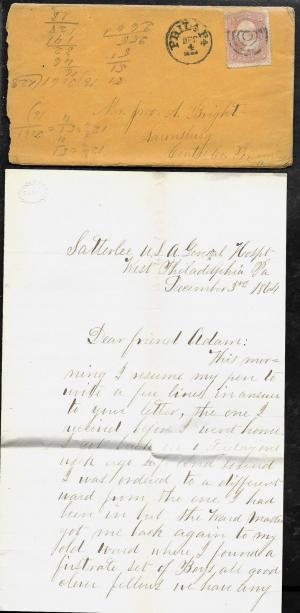 PHILA Pa
DEC
4
Mr. A. Bright
Satterlee U.S.A General Hospt
West Philadelphia Pa
December 3rd 1864
Dear friend Adam:
This mor-
ning I resume my pen to
write a few lines in answer
to your letter, the one I
recieved before I went home
I got back on Friday one
week ago
I was ordered to a different
ward from the one I had
been in but the Ward Master
got me back again to my
old Ward where I found a
firstrate set of Boys, all good
clever fellows we have any